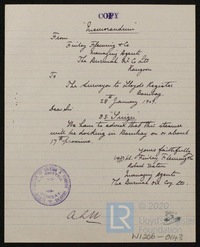 COPY
"Memorandum"
From
Finlay Fleming & Co
Managing Agents
The Burmah Oil Co Ltd
Rangoon
To
The Surveyor to Lloyds Register
Bombay.
28th January 1909.
Dear Sir
S.S.
We have to advise that this steamer
will be docking in Bombay on or about
17th proximo.
Yours faithfully
Finlay Fleming & Co
Robert
Managing Agents
The Burmah Oil Coy. Ltd.
Lloyd's Register
Foundation
W1266-0143